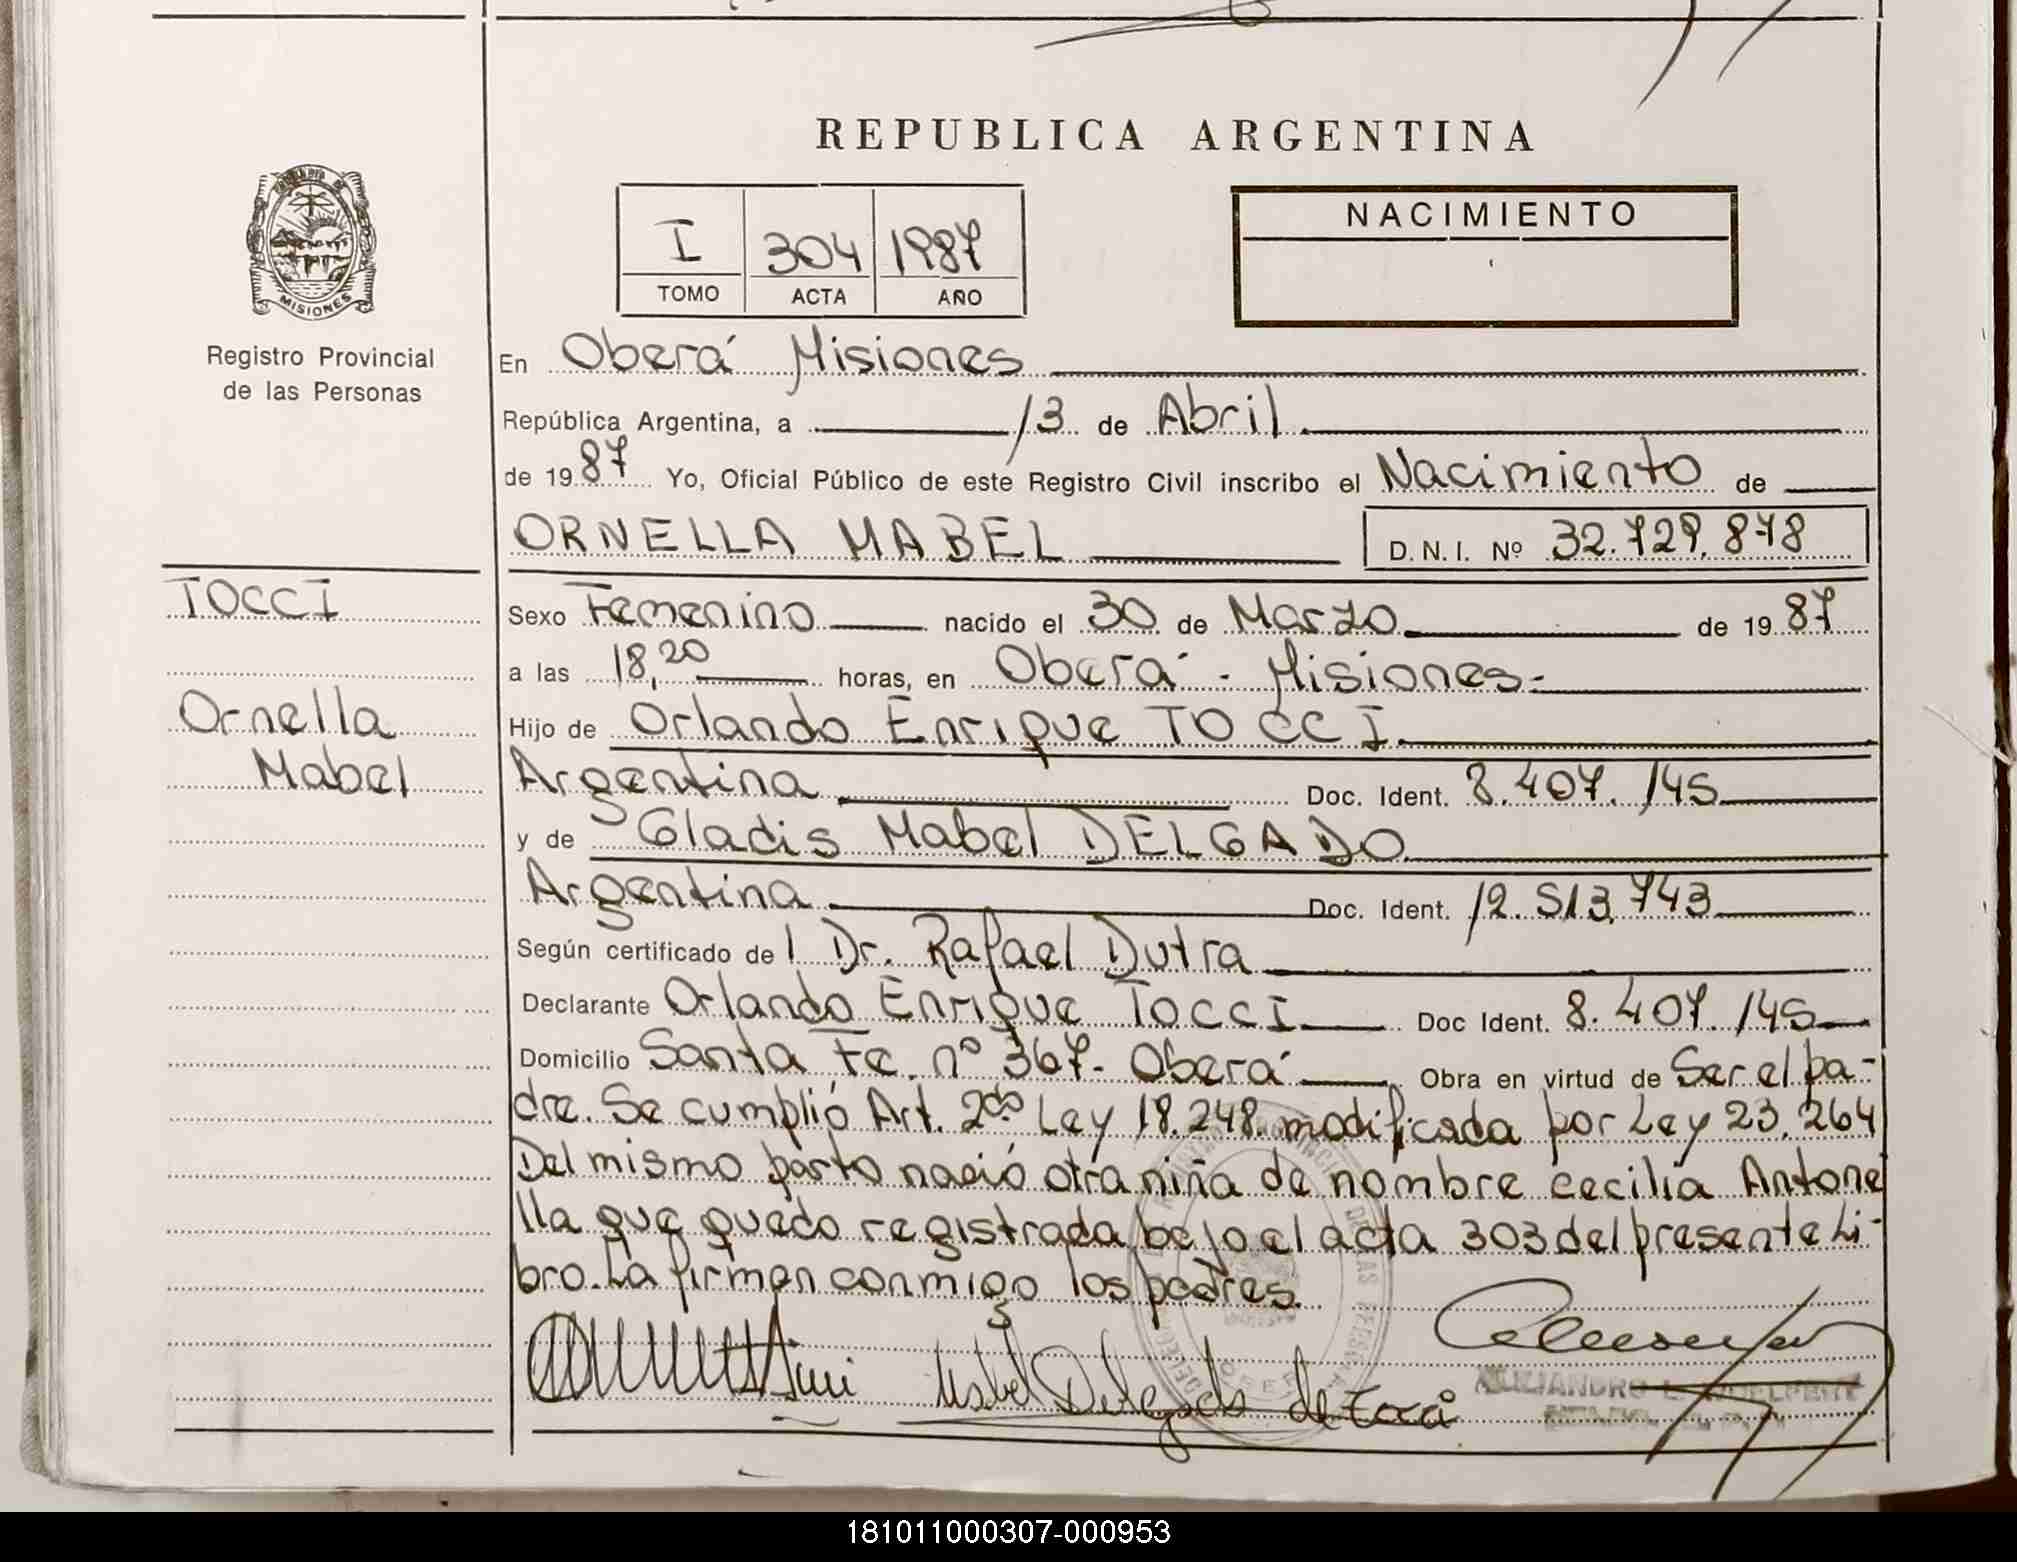 REPUBLICA ARGENTINA
MISIONES
Registro Provincial
de las Personas
I 304 1987
TOMO ACTA AÑO
NACIMIENTO
En Oberá Misiones
República Argentina, a 13 de Abril
de 1987 Yo, Oficial Público de este Registro Civil inscribo el Nacimiento de
ORNELLA MABEL D.N.I. Nº 32.729.878
TOCCI
Ornella
Mabel
Sexo Femenino nacido el 30 de Marzo de 1987
a las 18,20 horas, en Oberá - Misiones-
Hijo de Orlando Enrique TOCCI
Argentina Doc. Ident. 8.407.145
y de Gladis Mabel DELGADO
Argentina Doc. Ident. 12.513.743
Según certificado del Dr. Rafael Dutra
Declarante Orlando Enrique Tocci Doc Ident. 8.407.145
Domicilio Santa Fe nº 367- Oberá Obra en virtud de Ser el pa-
dre. Se cumplió Art. 2do Ley 18.248 modificada por Ley 23.264
Del mismo parto nació otra niña de nombre cecilia Antone
lla que quedo registrada bajo el acta 303 del presente Li-
bro. La firman conmigo los padres.
Mabel Delgado de Tocci
181011000307-000953